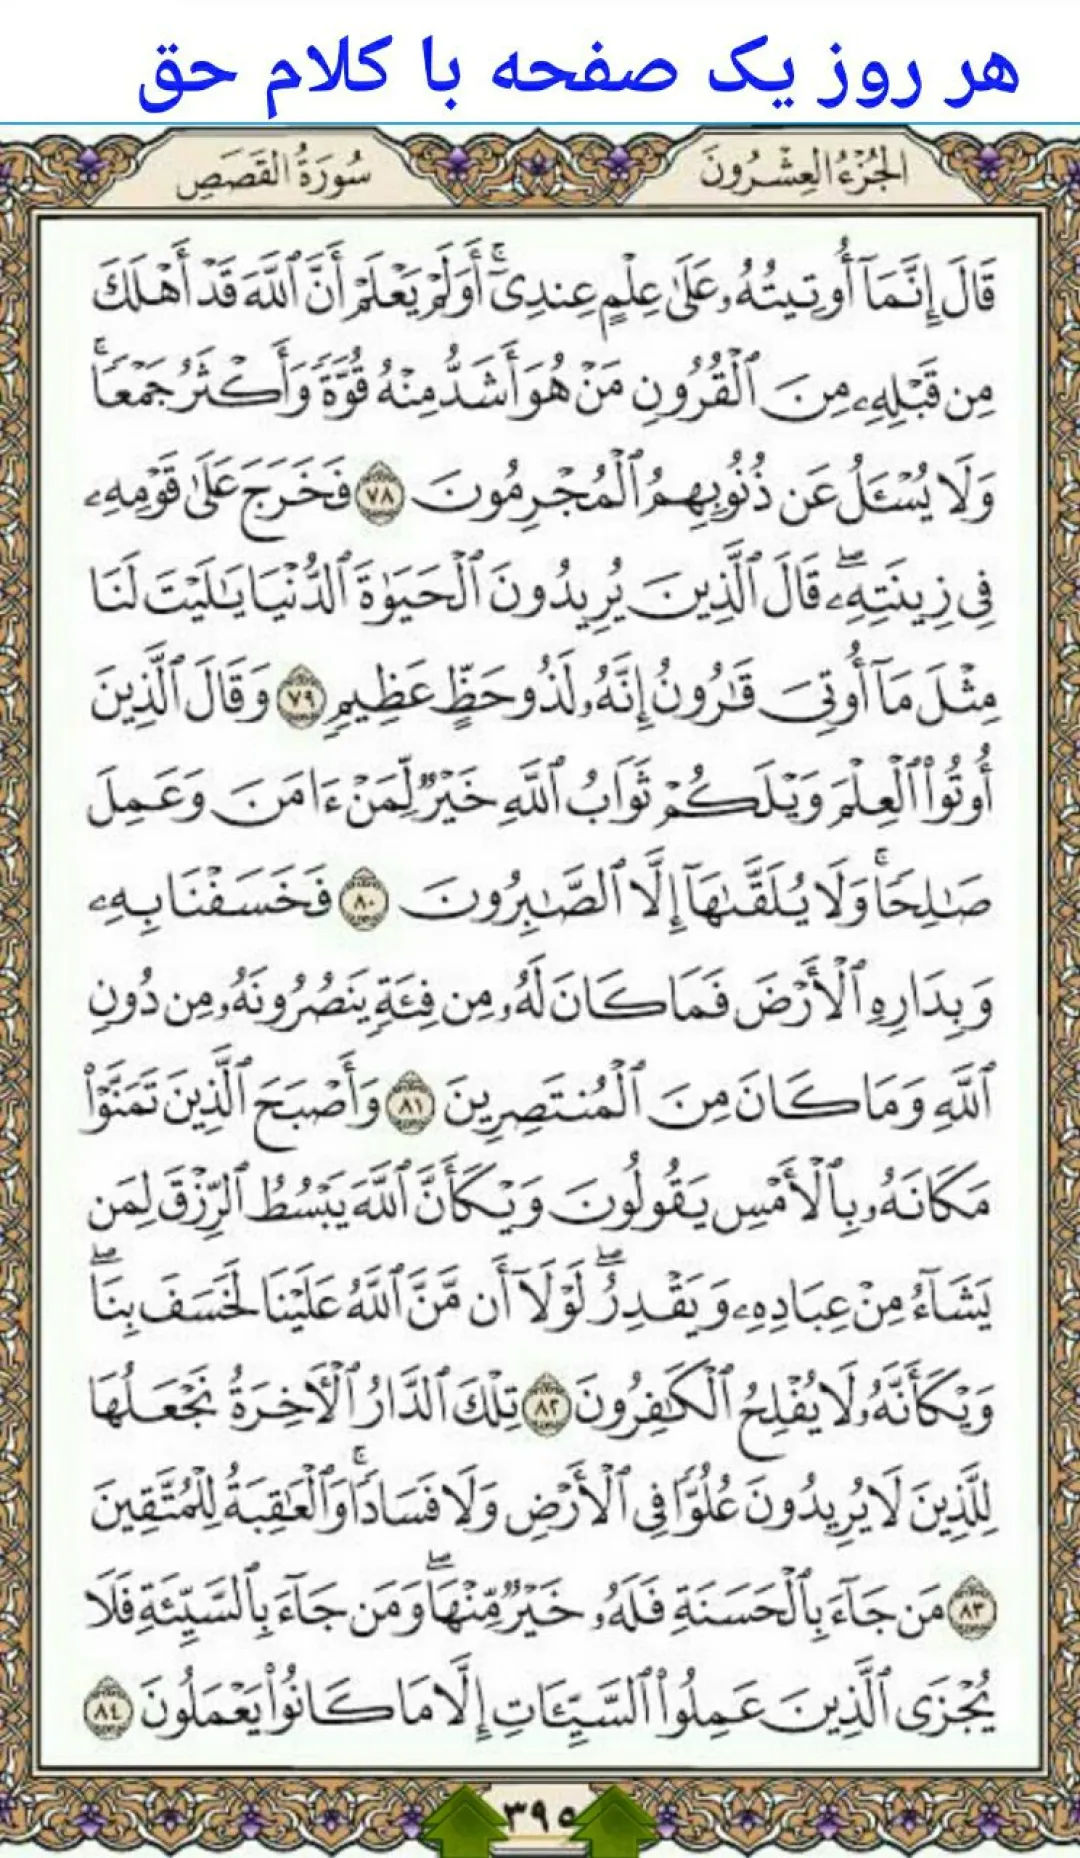 هر روز یک صفحه با کلام حق
الجُزْءُ العِشْرُونَ
سُورَةُ القَصَصِ
قَالَ إِنَّمَآ أُوتِيتُهُۥ عَلَىٰ عِلْمٍ عِندِىٓ ۚ أَوَلَمْ يَعْلَمْ أَنَّ ٱللَّهَ قَدْ أَهْلَكَ
مِن قَبْلِهِۦ مِنَ ٱلْقُرُونِ مَنْ هُوَ أَشَدُّ مِنْهُ قُوَّةً وَأَكْثَرُ جَمْعًا ۚ
وَلَا يُسْـَٔلُ عَن ذُنُوبِهِمُ ٱلْمُجْرِمُونَ ٧٨ فَخَرَجَ عَلَىٰ قَوْمِهِۦ
فِى زِينَتِهِۦ ۖ قَالَ ٱلَّذِينَ يُرِيدُونَ ٱلْحَيَوٰةَ ٱلدُّنْيَا يَـٰلَيْتَ لَنَا
مِثْلَ مَآ أُوتِىَ قَـٰرُونُ إِنَّهُۥ لَذُو حَظٍّ عَظِيمٍ ٧٩ وَقَالَ ٱلَّذِينَ
أُوتُوا۟ ٱلْعِلْمَ وَيْلَكُمْ ثَوَابُ ٱللَّهِ خَيْرٌ لِّمَنْ ءَامَنَ وَعَمِلَ
صَـٰلِحًا ۚ وَلَا يُلَقَّىٰهَآ إِلَّا ٱلصَّـٰبِرُونَ ٨٠ فَخَسَفْنَا بِهِۦ
وَبِدَارِهِ ٱلْأَرْضَ فَمَا كَانَ لَهُۥ مِن فِئَةٍ يَنصُرُونَهُۥ مِن دُونِ
ٱللَّهِ وَمَا كَانَ مِنَ ٱلْمُنتَصِرِينَ ٨١ وَأَصْبَحَ ٱلَّذِينَ تَمَنَّوْا۟
مَكَانَهُۥ بِٱلْأَمْسِ يَقُولُونَ وَيْكَأَنَّ ٱللَّهَ يَبْسُطُ ٱلرِّزْقَ لِمَن
يَشَآءُ مِنْ عِبَادِهِۦ وَيَقْدِرُ ۖ لَوْلَآ أَن مَّنَّ ٱللَّهُ عَلَيْنَا لَخَسَفَ بِنَا ۖ
وَيْكَأَنَّهُۥ لَا يُفْلِحُ ٱلْكَـٰفِرُونَ ٨٢ تِلْكَ ٱلدَّارُ ٱلْـَٔاخِرَةُ نَجْعَلُهَا
لِلَّذِينَ لَا يُرِيدُونَ عُلُوًّا فِى ٱلْأَرْضِ وَلَا فَسَادًا ۚ وَٱلْعَـٰقِبَةُ لِلْمُتَّقِينَ
٨٣ مَن جَآءَ بِٱلْحَسَنَةِ فَلَهُۥ خَيْرٌ مِّنْهَا ۖ وَمَن جَآءَ بِٱلسَّيِّئَةِ فَلَا
يُجْزَى ٱلَّذِينَ عَمِلُوا۟ ٱلسَّيِّـَٔاتِ إِلَّا مَا كَانُوا۟ يَعْمَلُونَ ٨٤
٣٩٥